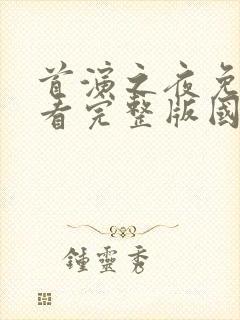 首演之夜免
看完整版國
鍾靈秀